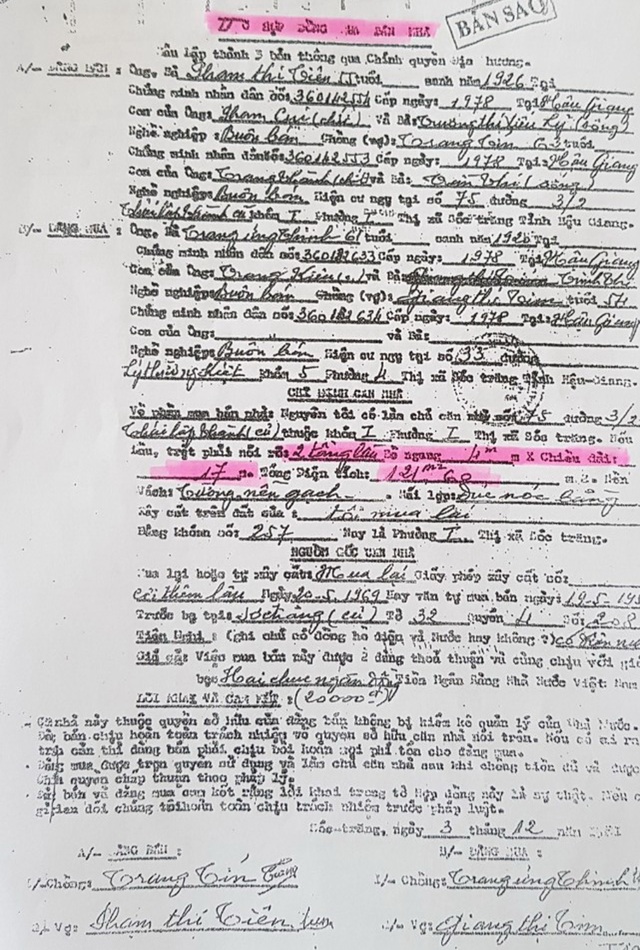 TỜ HỢP ĐỒNG MUA BÁN NHÀ
BẢN SAO
lập thành 3 bản thông qua Chính quyền Địa hương.
A/- ĐẢNG BÁN : Ông, Bà Phạm thị Tiên 55 tuổi sanh năm 1926 Tại
Chứng minh nhân dân số: 360142554 Cấp ngày: 1978 Tại Hậu Giang
Con của Ông: Phạm Cưu (chết) Và Bà: Trương thị Liễu Lý (sống)
Nghề nghiệp: Buôn bán Chồng (vợ): Trang Tím 63 tuổi
Chứng minh nhân dân số: 360142553 Cấp ngày: 1978 Tại: Hậu Giang
Con của Ông: Trang Khánh (chết) và Bà: Trần Thị (sống)
Nghề nghiệp Buôn bán Hiện cư ngụ tại số 75 đường 3/2
khóm I Phường I Thị xã Sóc trăng Tỉnh Hậu Giang.
B/- ĐẢNG MUA : Ông, Bà Trang ứng Thinh 61 tuổi sanh năm 1920 Tại
Chứng minh nhân dân số: 360182633 Cấp ngày: 1978 Tại Hậu Giang
Con của Ông: Trang Kiều và Bà Trinh Thị
Nghề nghiệp: Buôn bán Chồng (vợ): Giang thị Tím tuổi 57
Chứng minh nhân dân số: 360181634 Cấp ngày: 1978 Tại: Hậu Giang
Con của Ông: và Bà:
Nghề nghiệp: Buôn bán Hiện cư ngụ tại số 33 đường
Lý thường Kiệt khóm 5 Phường 4 Thị xã Sóc trăng Tỉnh Hậu-Giang.
CHỈ ĐỊNH CĂN NHÀ
Về phần mua bán nhà: Nguyên tôi có làm chủ căn nhà số 75 đường 3/2
(cũ) thuộc khóm I Phường I Thị xã Sóc trăng. Nếu
lầu, trệt phải nói rõ: 2 tầng lầu Bề ngang 4m m X Chiều dài:
17 m. Tổng Diện tích: 121m² 68 m.2. Nền
Vách: Tường nền gạch . Mái lợp: đúc nóc bằng
Xây cất trên đất của : tôi mua lại
Bằng khoán số: 257 Nay là Phường I Thị xã Sóc trăng.
NGUỒN GỐC CĂN NHÀ
Mua lại hoặc tự xây cất: Mua lái Giấy phép xây cất số:
cất thêm lầu Ngày 20-5-1969 Hay văn tự mua bán ngày: 19-5-
Trước bạ tại: Sóctrăng (cũ) Tờ 32 quyển 4 số: 208
Tiện Nghi : (ghi chú có đồng hồ điện và Nước hay không ?) có
Giá cả: Việc mua bán này được 2 đảng thoả thuận và cùng chịu với giá
bạc Hai chục ngàn đồng Tiền Ngân Hàng Nhà Nước Việt Nam
LỜI KHAI VÀ CAM KẾT : (20000đ)
- Căn nhà này thuộc quyền sở hữu của đảng bán không bị kiểm kê quản lý của Nhà Nước.
bán chịu hoàn toàn trách nhiệm về quyền sở hữu căn nhà nói trên. Nếu có ai
trở cản thì đảng bán phải chịu bồi hoàn mọi phí tổn cho đảng mua.
- Đảng mua được trọn quyền sử dụng và làm chủ căn nhà sau khi chồng tiền đủ và được
Chính quyền chấp thuận theo pháp lý.
- bán và đảng mua cam kết rằng lời khai trong tờ hợp đồng này là sự thật. Nếu
gian dối chúng tôi hoàn toàn chịu trách nhiệm trước pháp luật.
Sóc-trăng, ngày 3 tháng 12 năm 1981
A/- ĐẢNG BÁN : B/- ĐẢNG MUA :
1/-Chồng: Trang Tín 1/- Chồng: Trang ứng Thinh
2/- Vợ: Phạm thị Tiên 2/- Vợ: Giang thị Tím